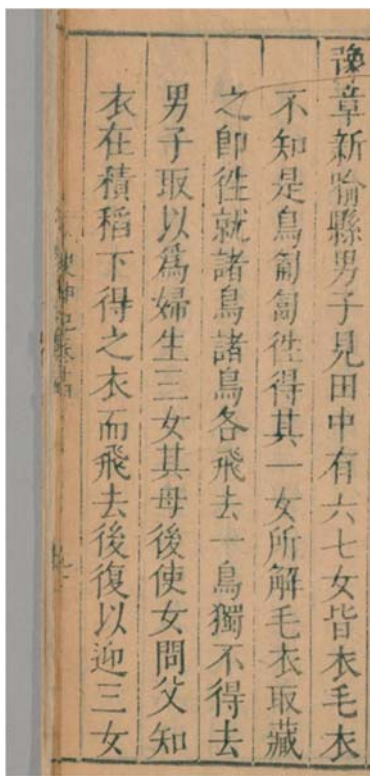 豫章新喻縣男子見田中有六七女皆衣毛衣
不知是鳥匍匐徃得其一女所解毛衣取藏
之卽徃就諸鳥諸鳥各飛去一鳥獨不得去
男子取以爲婦生三女其母後使女問父知
衣在積稻下得之衣而飛去後復以迎三女